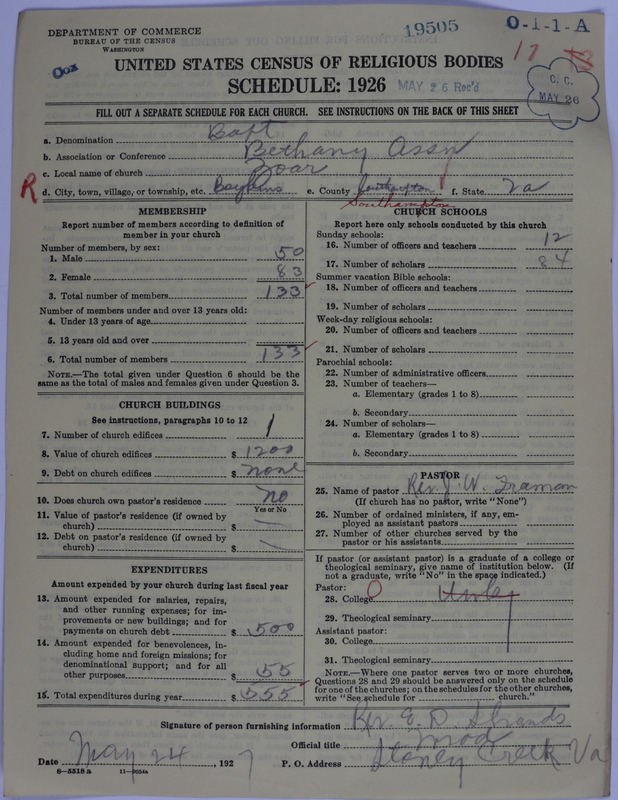 19505 O-1-1-A
DEPARTMENT OF COMMERCE
BUREAU OF THE CENSUS
WASHINGTON
17
UNITED STATES CENSUS OF RELIGIOUS BODIES
SCHEDULE: 1926 MAY 26 Rec'd
C. C. MAY 26
FILL OUT A SEPARATE SCHEDULE FOR EACH CHURCH. SEE INSTRUCTIONS ON THE BACK OF THIS SHEET
a. Denomination Bapt
b. Association or Conference Bethany Assn
c. Local name of church Zoar
R d. City, town, village, or township, etc. Boykins e. County Southampton f. State Va
Southampton
MEMBERSHIP
Report number of members according to definition of member in your church
Number of members, by sex:
1. Male 50
2. Female 83
3. Total number of members 133
Number of members under and over 13 years old:
4. Under 13 years of age
5. 13 years old and over
6. Total number of members 133
NOTE.—The total given under Question 6 should be the same as the total of males and females given under Question 3.
CHURCH BUILDINGS
See instructions, paragraphs 10 to 12
7. Number of church edifices 1
8. Value of church edifices $ 1200
9. Debt on church edifices $ none
10. Does church own pastor's residence no
Yes or No
11. Value of pastor's residence (if owned by church) $ —
12. Debt on pastor's residence (if owned by church) $ —
EXPENDITURES
Amount expended by your church during last fiscal year
13. Amount expended for salaries, repairs, and other running expenses; for improvements or new buildings; and for payments on church debt $ 500
14. Amount expended for benevolences, including home and foreign missions; for denominational support; and for all other purposes $ 55
15. Total expenditures during year $ 555
CHURCH SCHOOLS
Report here only schools conducted by this church
Sunday schools:
16. Number of officers and teachers 12
17. Number of scholars 84
Summer vacation Bible schools:
18. Number of officers and teachers
19. Number of scholars
Week-day religious schools:
20. Number of officers and teachers
21. Number of scholars
Parochial schools:
22. Number of administrative officers
23. Number of teachers—
a. Elementary (grades 1 to 8)
b. Secondary
24. Number of scholars—
a. Elementary (grades 1 to 8)
b. Secondary
PASTOR
25. Name of pastor Rev. J. W.
(If church has no pastor, write "None")
26. Number of ordained ministers, if any, employed as assistant pastors
27. Number of other churches served by the pastor or his assistants
If pastor (or assistant pastor) is a graduate of a college or theological seminary, give name of institution below. (If not a graduate, write "No" in the space indicated.)
Pastor:
28. College 0
29. Theological seminary
Assistant pastor:
30. College
31. Theological seminary
NOTE.—Where one pastor serves two or more churches, Questions 28 and 29 should be answered only on the schedule for one of the churches; on the schedules for the other churches, write "See schedule for church."
Signature of person furnishing information Rev E. D.
Official title Mod
Date May 24, 1927 P. O. Address Stoney Creek Va
8—5518a 11—9654a